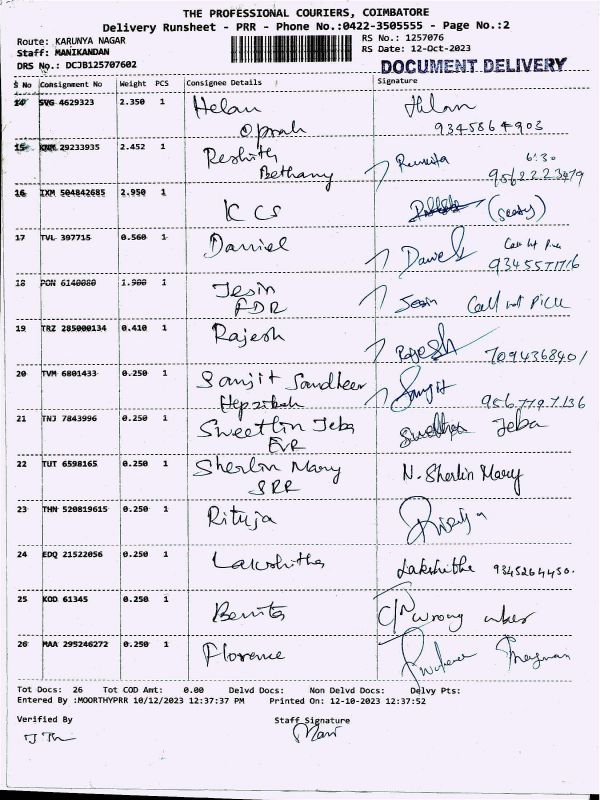 THE PROFESSIONAL COURIERS, COIMBATORE
Delivery Runsheet - PRR - Phone No.:0422-3505555 - Page No.:2
Route: KARUNYA NAGAR RS No.: 1257076
Staff: MANIKANDAN RS Date: 12-Oct-2023
DRS No.: DCJB125707602 DOCUMENT DELIVERY
S No Consignment No Weight PCS Consignee Details Signature
14 SVG 4629323 2.350 1 Helan Hilan
Oprah
15 KNM 29233935 2.452 1 Reshith 6:30
Bethany
16 IXM 504842685 2.950 1 K C S
17 TVL 397715 0.560 1 Daniel
9345571716
18 PON 6140080 1.900 1 Jesin Jesin Call not Pick
FDR
19 TRZ 285000134 0.410 1 Rajesh Rajesh 7094368401
20 TVM 6801433 0.250 1 Sanjit Sandheer Sanjit
Hepzibah
21 TNJ 7843996 0.250 1 Sweetlin Jeba Jeba
EVR
22 TUT 6598165 0.250 1 Sherlin Mary N. Sherlin Mary
SRR
23 THN 520819615 0.250 1 Rituja
24 EDQ 21522056 0.250 1 Lakshitha Lakshithe 9345264450.
25 KOD 61345 0.250 1 Benita wrong
26 MAA 295246272 0.250 1 Florence
Tot Docs: 26 Tot COD Amt: 0.00 Delvd Docs: Non Delvd Docs: Delvy Pts:
Entered By :MOORTHYPRR 10/12/2023 12:37:37 PM Printed On: 12-10-2023 12:37:52
Verified By Staff Signature
Mani